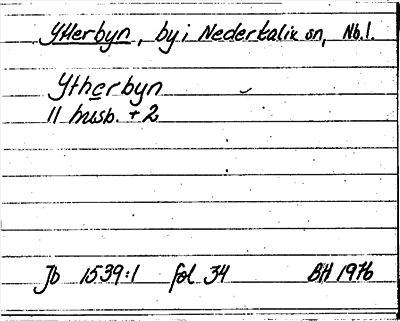 Ytterbyn, by i Nederkalix sn, Nb.l.
Ytherbyn
11 husb. + 2
Jb 1539:1 fol 34 BH 1976